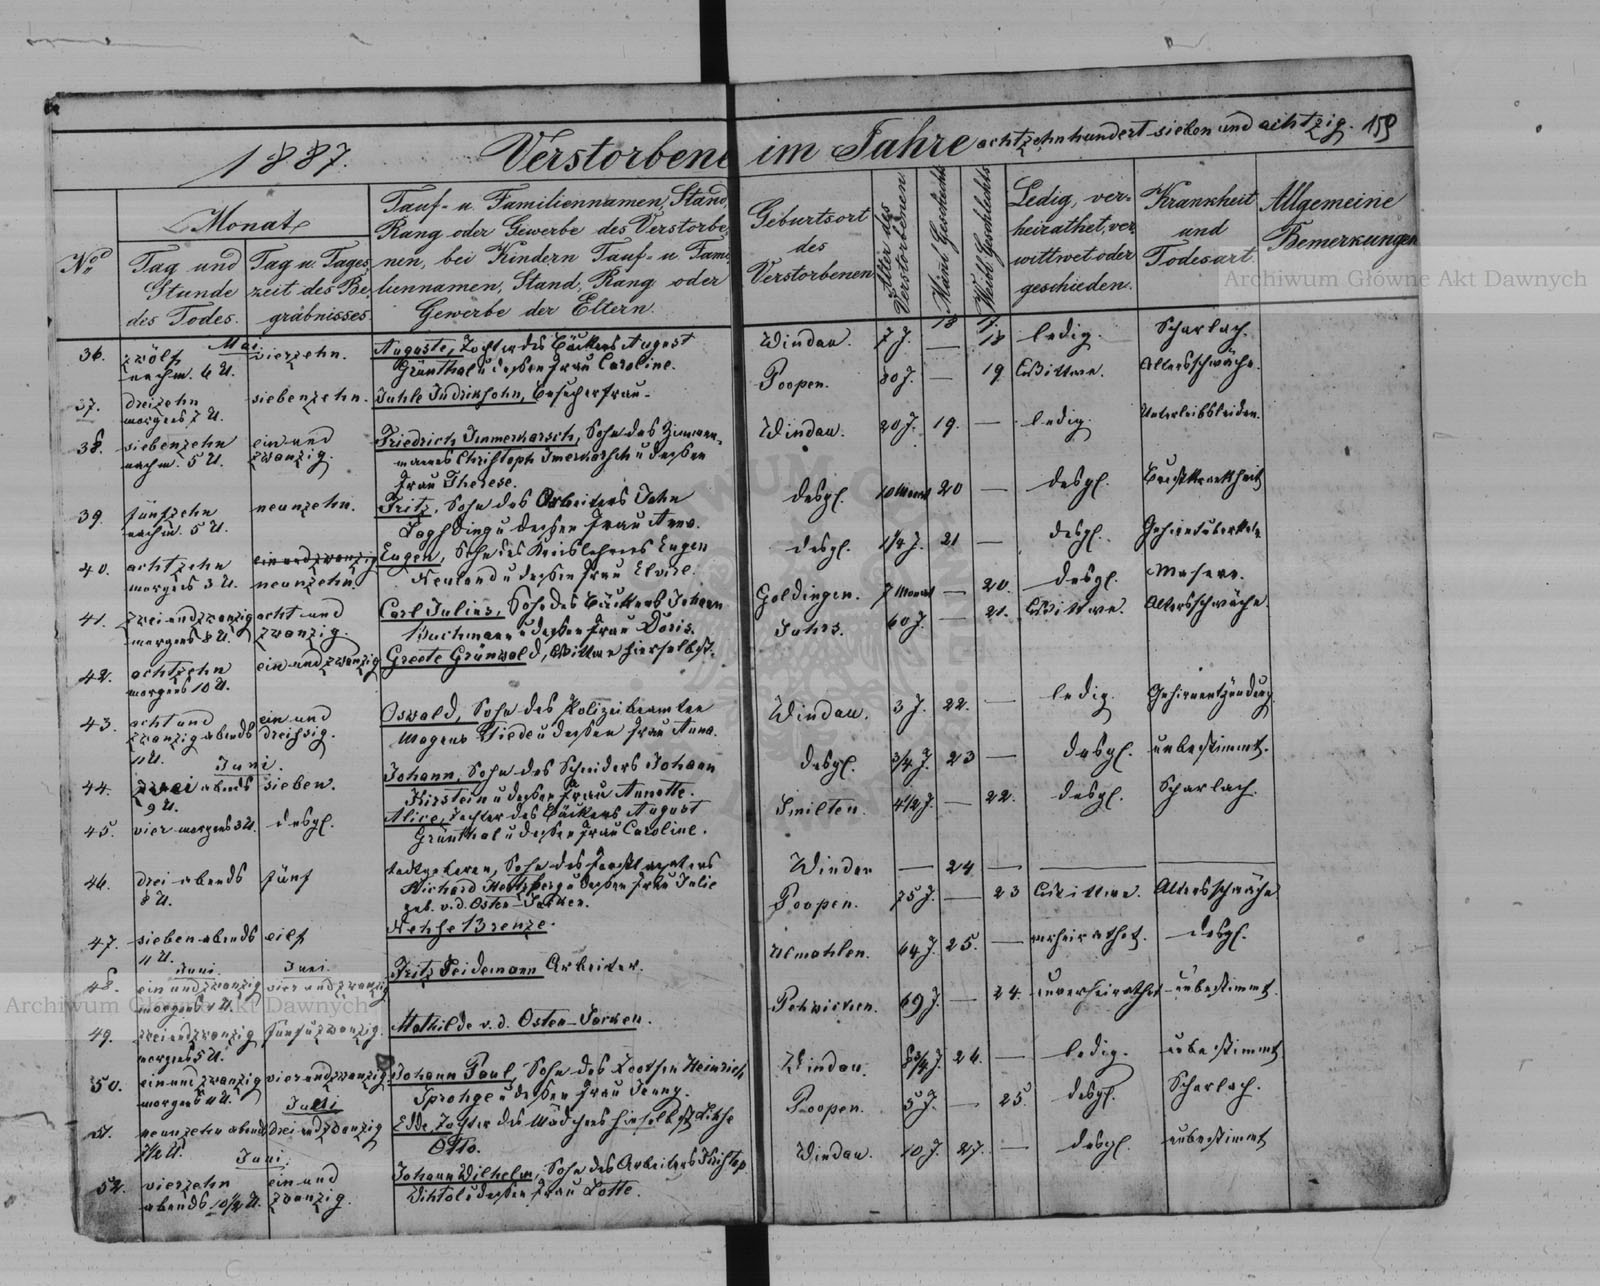 1887.
Verstorbene im Jahre achtzehnhundert sieben und achtzig. 159
No
Monat
Tag und Stunde des Todes.
Tag u. Tages zeit des Be, gräbnisses
Tauf- u. Familiennamen, Stand,
Rang oder Gewerbe des Verstorbe,
nen, bei Kindern Tauf- u Fami,
liennamen, Stand, Rang oder
Gewerbe der Eltern.
Geburtsort des Verstorbenen
Alter des Verstorbenen
Männl Geschlecht
Weibl. Geschlechts
Ledig, ver=
heirathet, ver
wittwet oder
geschieden.
Krankheit und Todesart.
Allgemeine Bemerkungen
Mai.
18 17.
36. zwölf vierzehn. Auguste, Tochter des Bäckers August Windau. 7 J. — 18 ledig. Scharlach.
nachm. 6 U. Grünthal u dessen Frau Caroline.
37. dreizehn siebenzehn. Juhle Indriksohn, Besucherfrau. Poopen. 80 J. — 19 Wittwe. Altersschwäche.
morgens 7 U.
38. siebenzehn ein und Friedrich Immermarsch, Sohn des Zimmer, Windau. 20 J. 19. — ledig. Unterleibsleiden.
nachm. 5 U. zwanzig. mannes Christoph u dessen
Frau Therese.
39. fünfzehn neunzehn. Fritz, Sohn des Arbeiters Jahn desgl. 10 Monat 20 — desgl. Brustkrankheit
nachm. 5 U. u dessen Frau Anna.
40. achtzehn ein und zwanzig Eugen, Sohn des Kreislehrers Eugen desgl. 1/4 J. 21 — desgl.
morgens 3 U. neunzehn. Neuland u dessen Frau
41. zwei und zwanzig acht und Carl Julius, Sohn des Bäckers Johann Goldingen. 7 Monat — 20. desgl. Masern.
morgens 8 U. zwanzig. Buchmann u dessen Frau Doris.
42. achtzehn ein und zwanzig Greete Grünwald, Wittwe hierselbst. 60 J. — 21. Wittwe. Altersschwäche.
morgens 10 U.
43. acht und ein und Oswald, Sohn des Polizeibeamten Windau. 3 J. 22. — ledig. Gehirnentzündung
zwanzig abends dreissig. Magnus u dessen Frau Anna.
11 U. Juni.
44. zwei abends sieben. Johann, Sohn des Schneiders Johann desgl. 3/4 J. 23 — desgl. unbestimmt.
9 U. Kirstein u dessen Frau Annette.
45. vier morgens 3 U. desgl. Alice, Tochter des Bäckers August Smilten. 4 1/2 J. — 22. desgl. Scharlach.
Grünthal u dessen Frau Caroline.
46. drei abends fünf todtgeboren, Sohn des Windau — 24. — — —
8 U. Richard u dessen Frau Julie
geb. v. d. Osten-Sacken.
47. sieben abends eilf Nehse Brenze. Poopen. 75 J. — 23 Wittwe. Altersschwäche
11 U.
Juni. Juni.
48. ein und zwanzig vier und zwanzig Fritz Seidemann Arbeiter. Ulmahlen. 64 J. 25. — verheirathet. desgl.
morgens U.
49. zwei und zwanzig fünf u zwanzig. Mathilde v. d. Osten-Sacken. 69 J. — 24. unverheirathet unbestimmt.
morgens 5 U.
50. ein und zwanzig vier und zwanzig. Johann Paul, Sohn des Lootsen Heinrich Windau. 8 3/4 J. 26. — ledig. unbestimmt
morgens 4 U. Sprohge u dessen Frau Jenny.
Juni
51. neunzehn abends drei und zwanzig Edde, Tochter des Mädchens hieselbst Poopen. 5 J. — 25. desgl. Scharlach.
U. Otto.
Juni.
52. vierzehn ein und Johann Wilhelm, Sohn des Arbeiters Windau. 10 J. 27. — desgl. unbestimmt
abends 10 1/2 U. zwanzig. u dessen Frau Lotte.
Archiwum Główne Akt Dawnych
Archiwum Główne Akt Dawnych